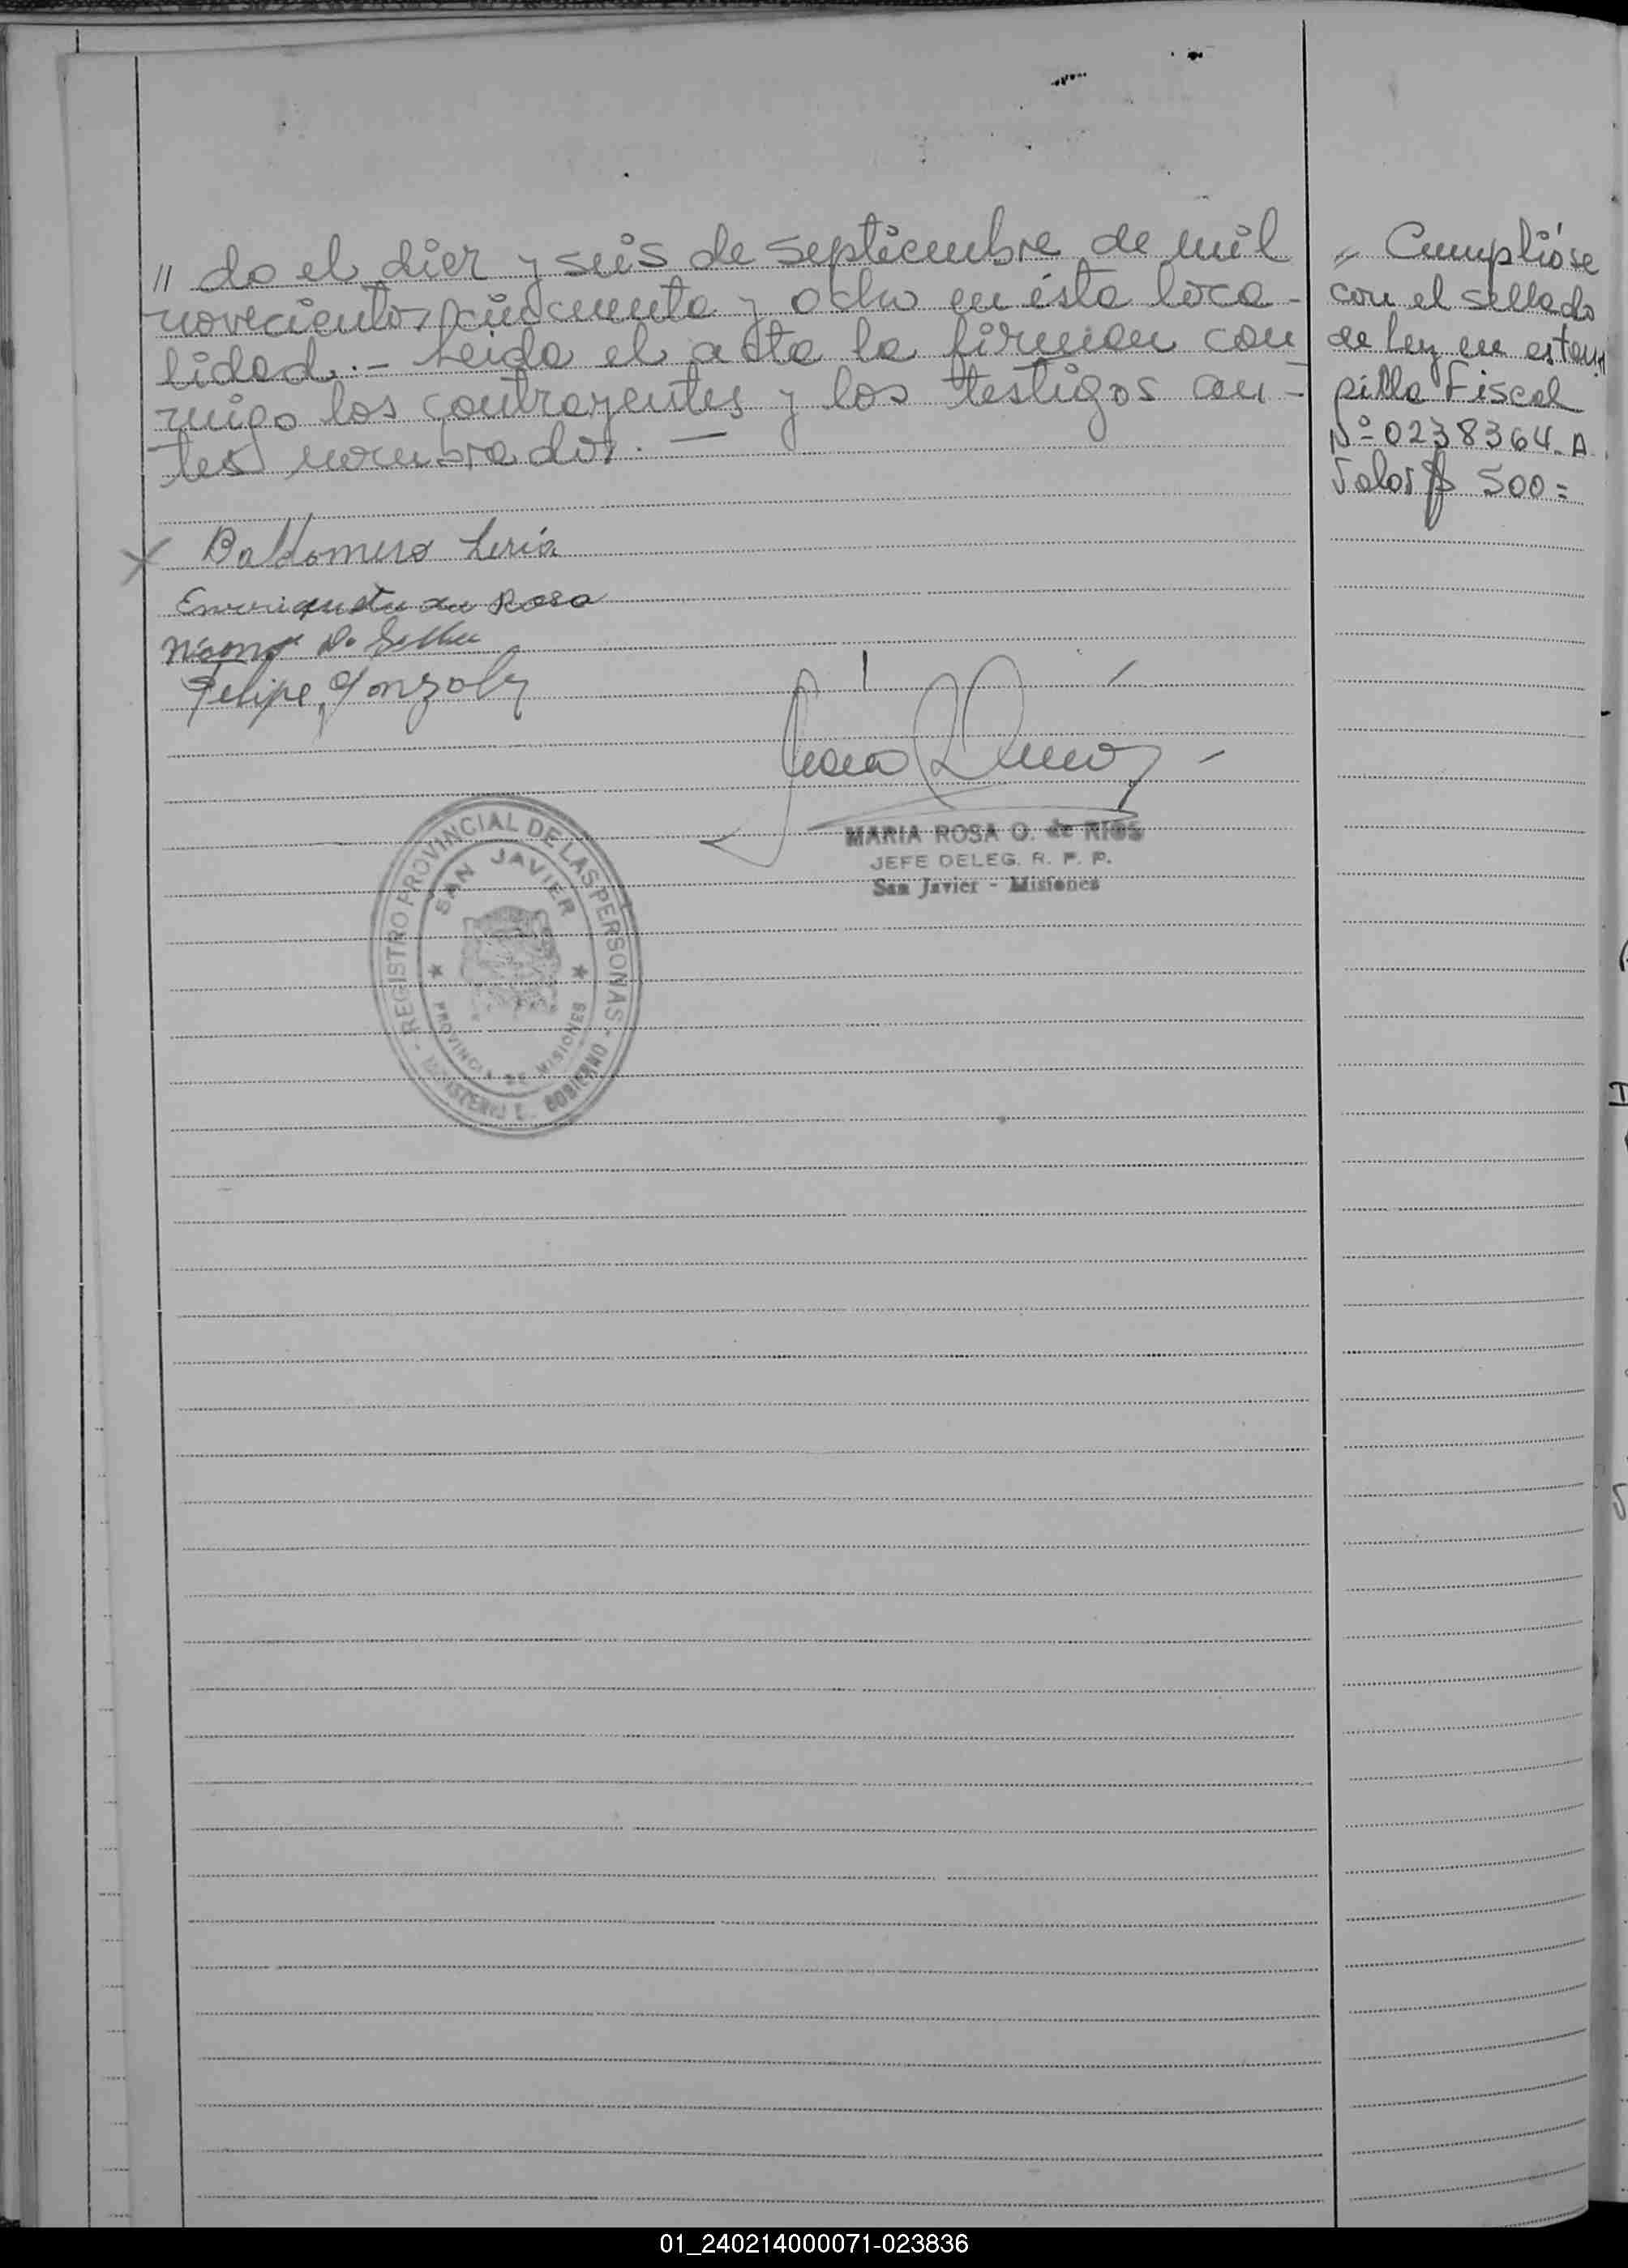 // do el diez y seis de septiembre de mil
novecientos cincuenta y ocho en ésta loca-
lidad.- Leida el acta la firman con
migo los contrayentes y los testigos an-
tes nombrados. —
X Baldomero Leria
Enriqueta da Rosa
Felipe Gonzalez
MARIA ROSA O. de RIOS
JEFE DELEG. R. P. P.
San Javier - Misiones
REGISTRO PROVINCIAL DE LAS PERSONAS
SAN JAVIER
PROVINCIA DE MISIONES
MINISTERIO GOBIERNO
// Cumplióse
con el sellado
de Ley en estam
pilla Fiscal
Nº 0238364. A
Valor $ 500=
01_240214000071-023836